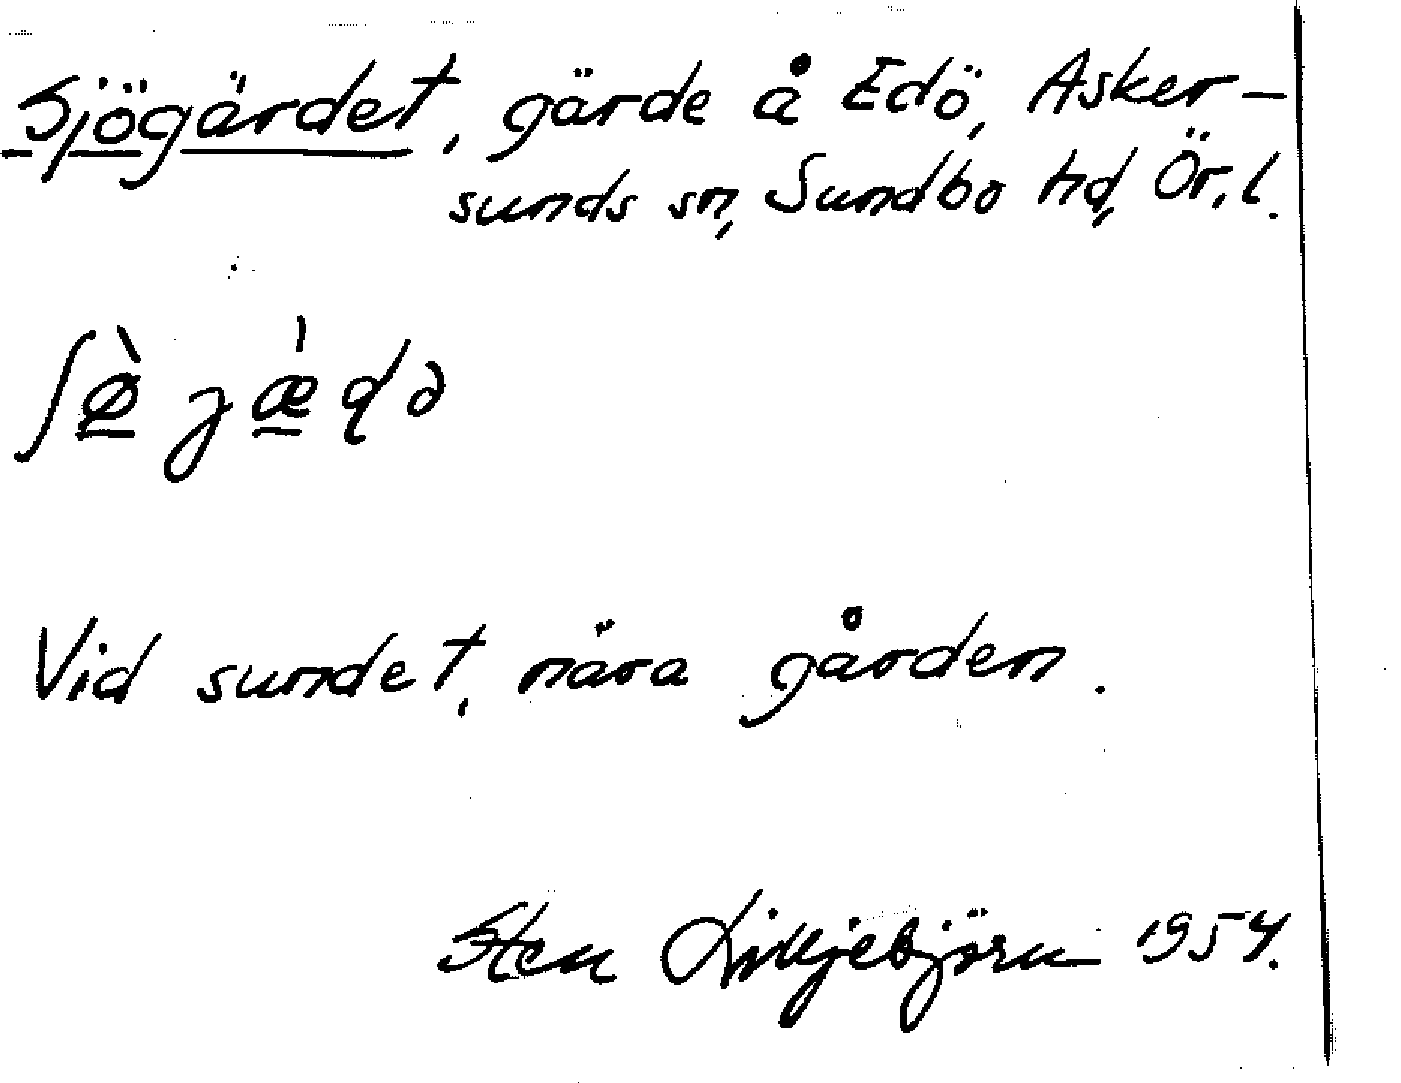 Sjögärdet, gärde å Edö, Asker-
sunds sn, Sundbo hd, Ör. l.
ʃø̱̀ jæ̱̀ɖə
Vid sundet, nära gården.
Sten Liljebjörn 1954.